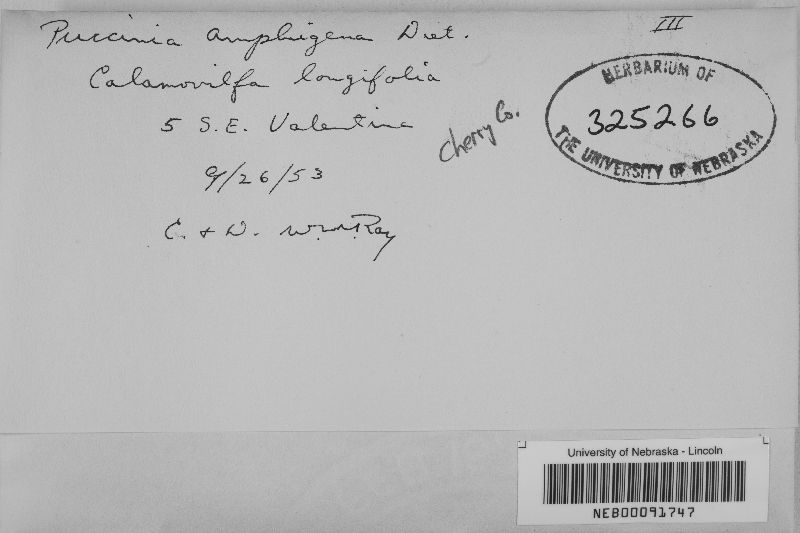 Puccinia amphigena Diet.
III
Calamovilfa longifolia
5 S.E. Valentine
Cherry Co.
9/26/53
C. & D.
HERBARIUM OF
325266
THE UNIVERSITY OF NEBRASKA
University of Nebraska - Lincoln
NEB00091747